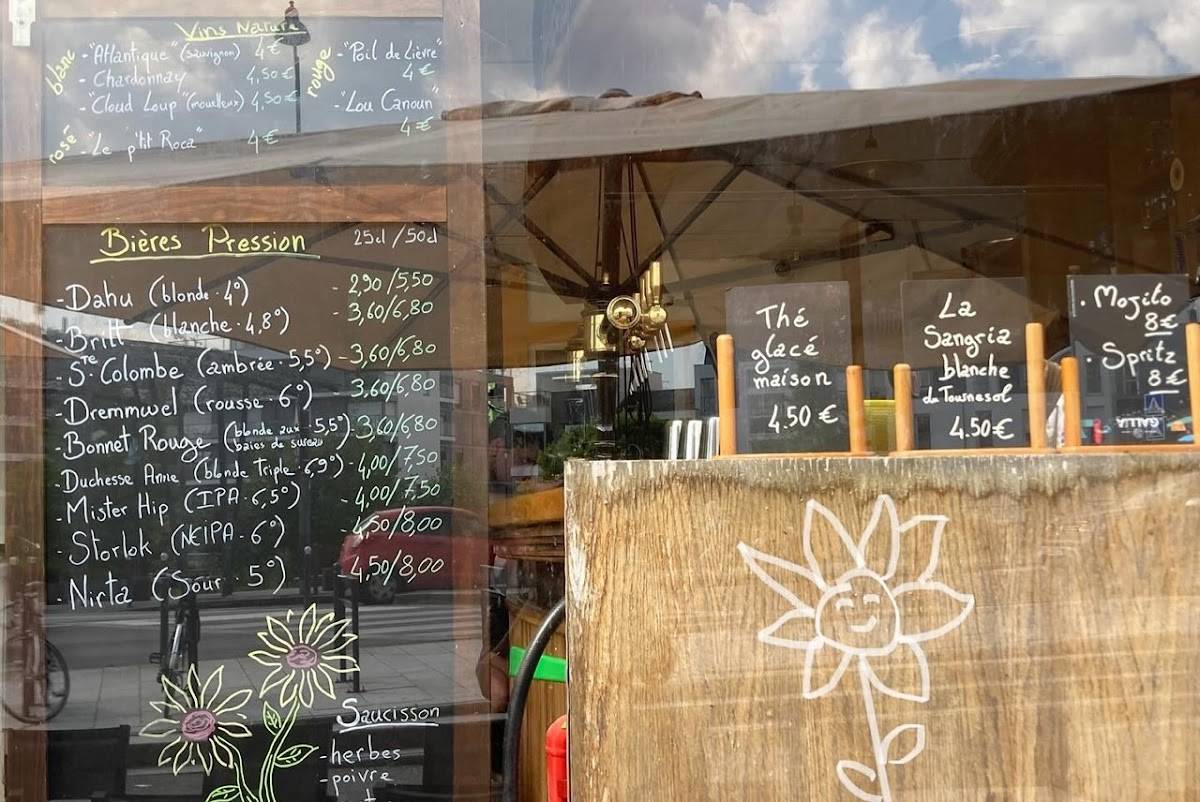 Vins Nature
blanc
-"Atlantique" (sauvignon) 4€
- Chardonnay 4,50€
-"Cloud Loup" (moelleux) 4,50€
rosé
-"Le p'tit Roca" 4€
rouge
-"Poil de Lièvre"
4€
-"Lou Canoun"
4€
Bières Pression 25cl/50cl
-Dahu (blonde · 4°) - 2,90/5,50
-Britt (blanche · 4,8°) - 3,60/6,80
-Ste Colombe (ambrée · 5,5°) - 3,60/6,80
-Dremmwel (rousse · 6°) 3,60/6,80
-Bonnet Rouge (blonde aux baies de sureau · 5,5°) - 3,60/6,80
-Duchesse Anne (blonde Triple · 6,9°) - 4,00/7,50
-Mister Hip (IPA · 6,5°) - 4,00/7,50
-Storlok (NEIPA - 6°) - 4,50/8,00
-Nirta (Sour · 5°) - 4,50/8,00
Saucisson
-herbes
-poivre
Thé
glacé
maison
4.50 €
La
Sangria
blanche
du Tournesol
4.50€
· Mojito
8€
· Spritz
8€
GALLIA